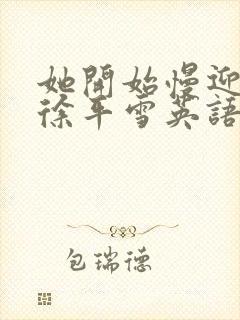 她開始慢迎
徐平雪英語
包瑞德